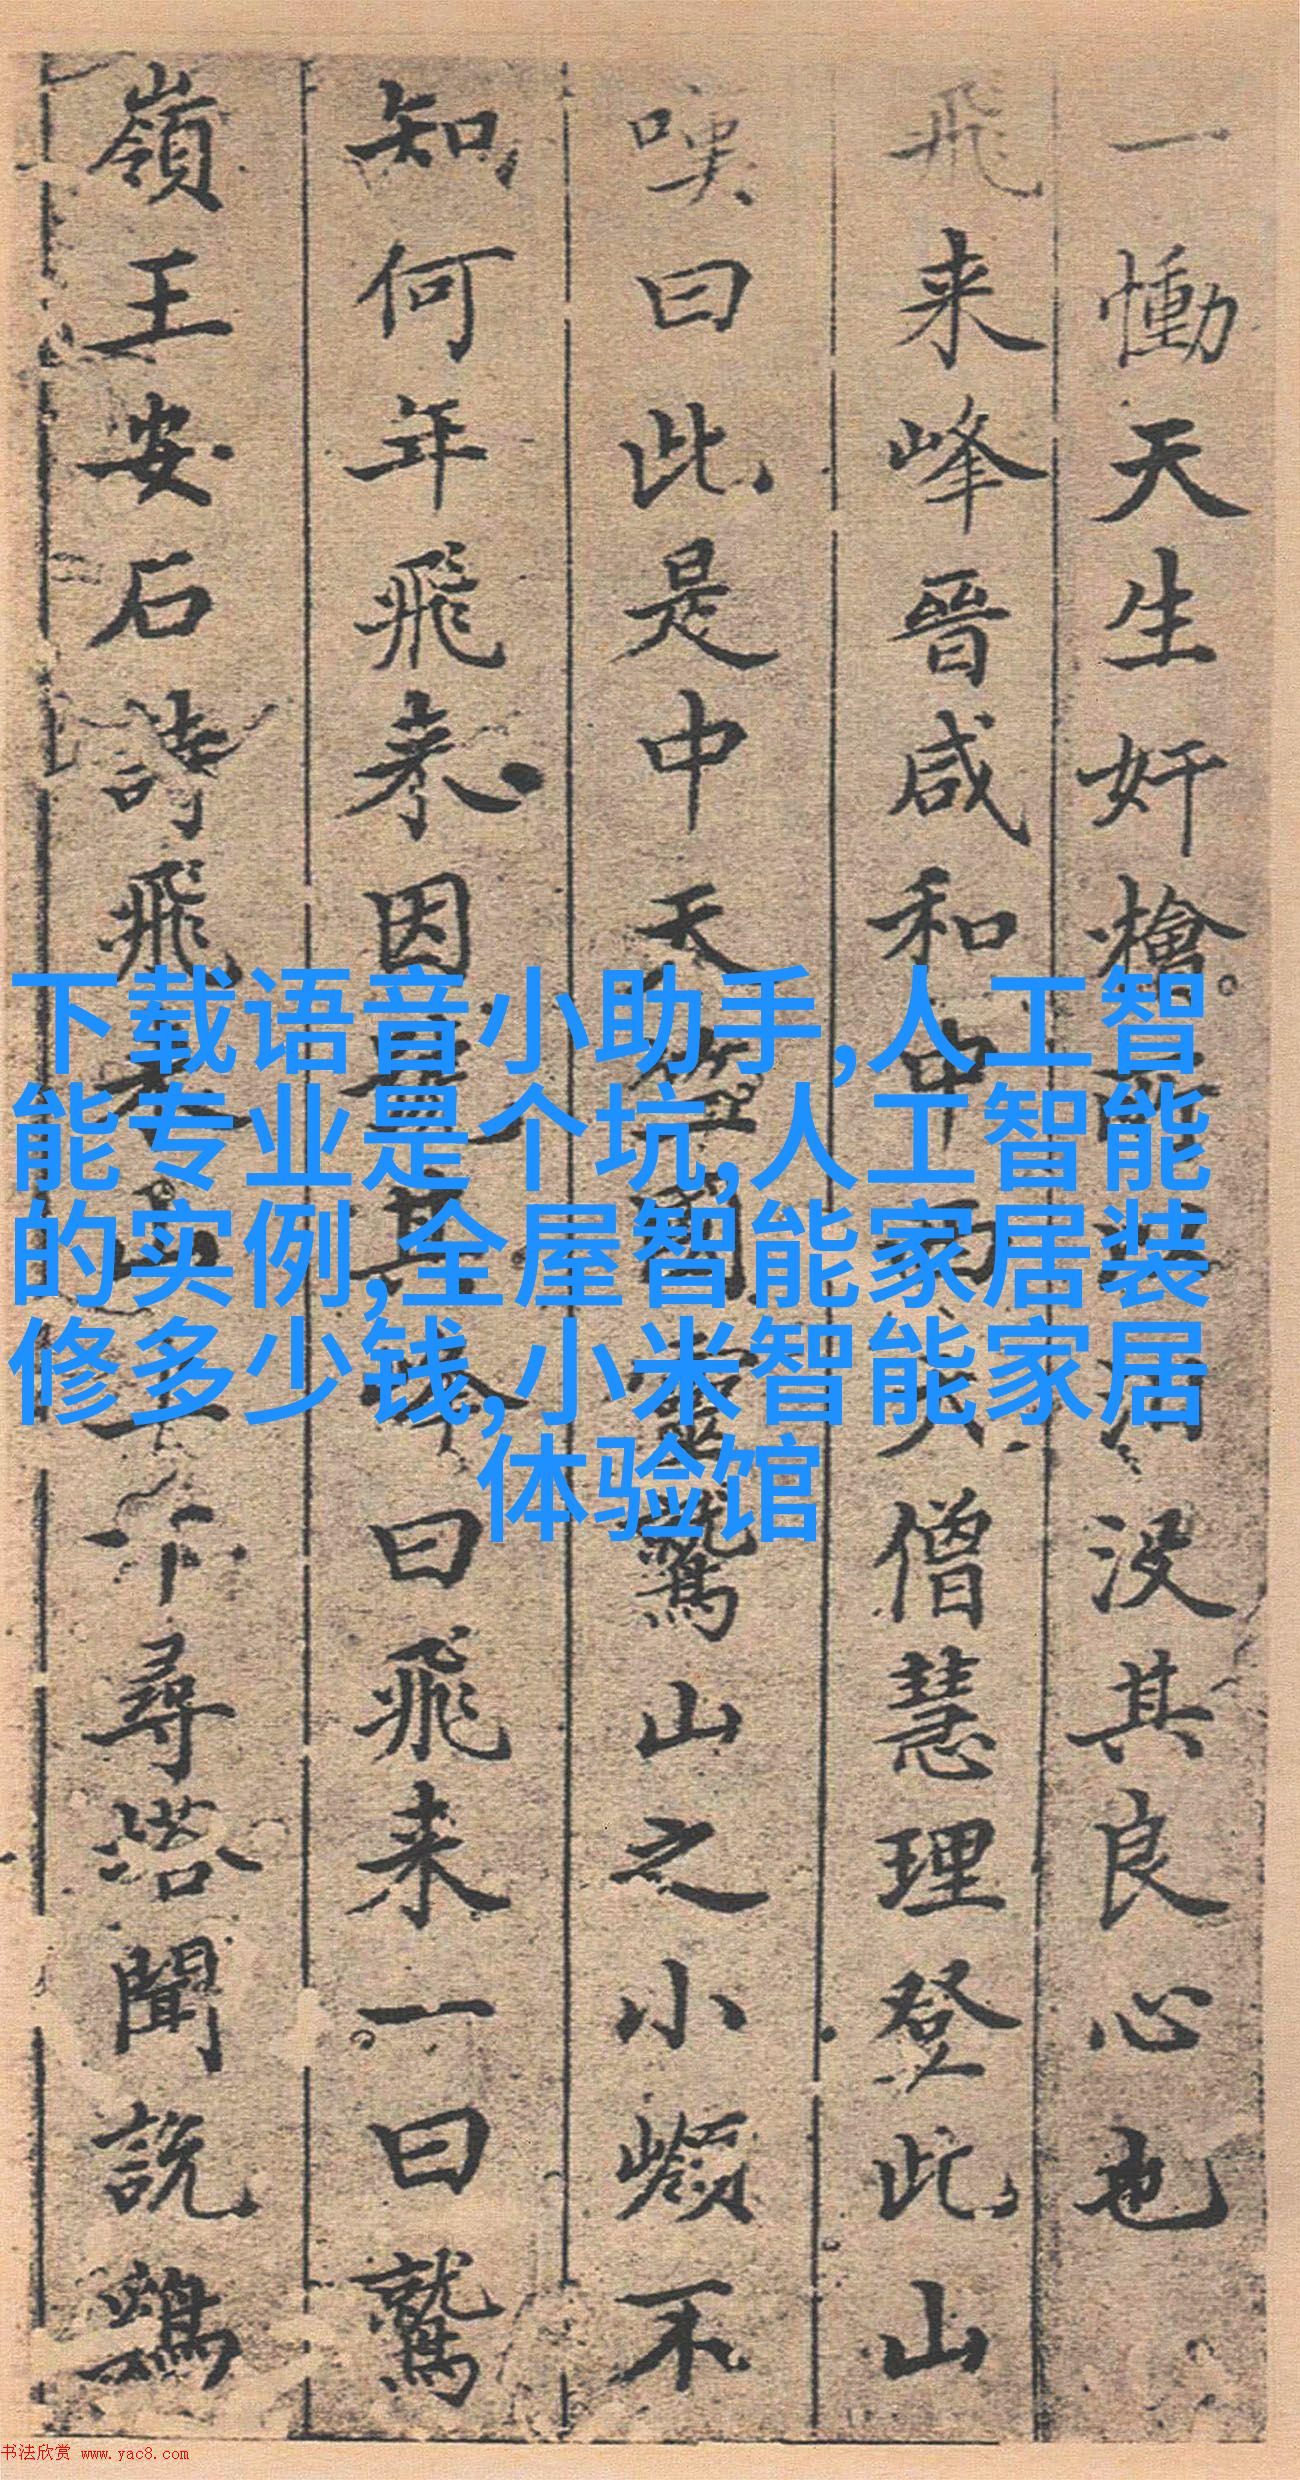 一慟天生奸檜
没其良心也
飛来峰晉咸和中
僧慧理登此山
嘆曰此是中天
靈鷲山之小嶺不
知何年飛来因
曰飛来一曰鷲
嶺王安石詩飛来山上千尋塔聞説鷄
下载语音小助手,人工智
能专业是个坑,人工智能
的实例,全屋智能家居装
修多少钱,小米智能家居
体验馆
书法欣赏 www.yac8.com